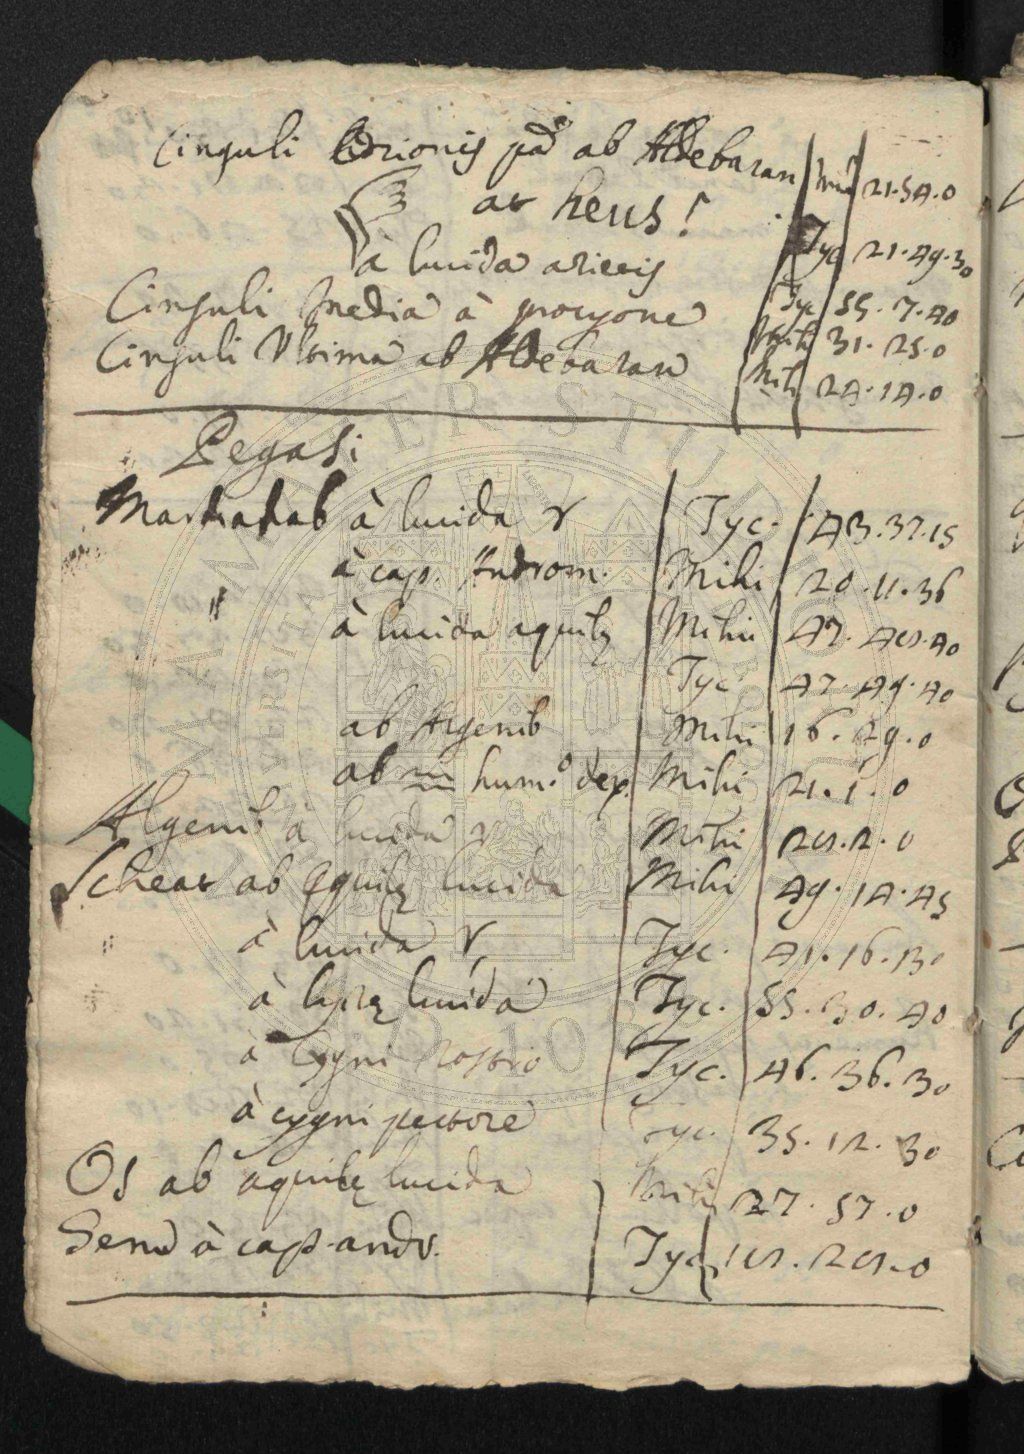 Cinguli Orionis pa ab Aldebaran | Mihi | 21.54.0
at heus! Tyc 21.49.30
à lucida arietis Tyc 55.7.40
Cinguli Media à procyone Mihi 31.25.0
Cinguli Vltima ab Aldebaran Mihi 24.14.0
Pegasi
Markab à lucida ♈ | Tyc. | 43.37.15
à cap. Androm. | Mihi | 20.11.36
à lucida aquilę | Mihi | 47.48.40
Tyc 47.49.40
ab Algenib Mihi 16.29.0
ab ♒ hum.o dex. Mihi 21.1.0
Algenib à lucida ♈ Mihi 28.2.0
Scheat ab aquilę lucida Mihi 49.14.45
à lucida ♈ Tyc. 41.16.30
à lyrę lucida Tyc. 55.30.40
à Cygni rostro Tyc. 46.36.30
à cygni pectore Tyc. 35.12.30
Os ab aquilę lucida Mihi 27.57.0
Genu à cap. andr. Tyc 18.28.0